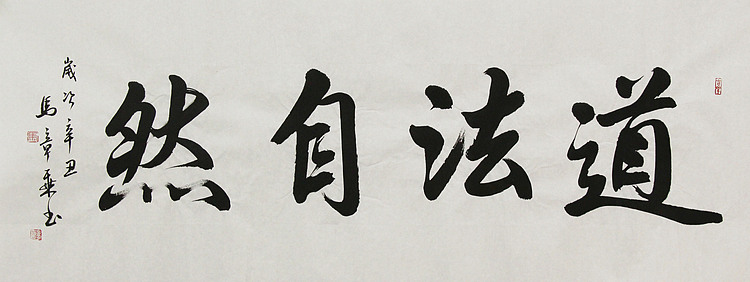 道法自然
歲次辛丑
馬章乘书